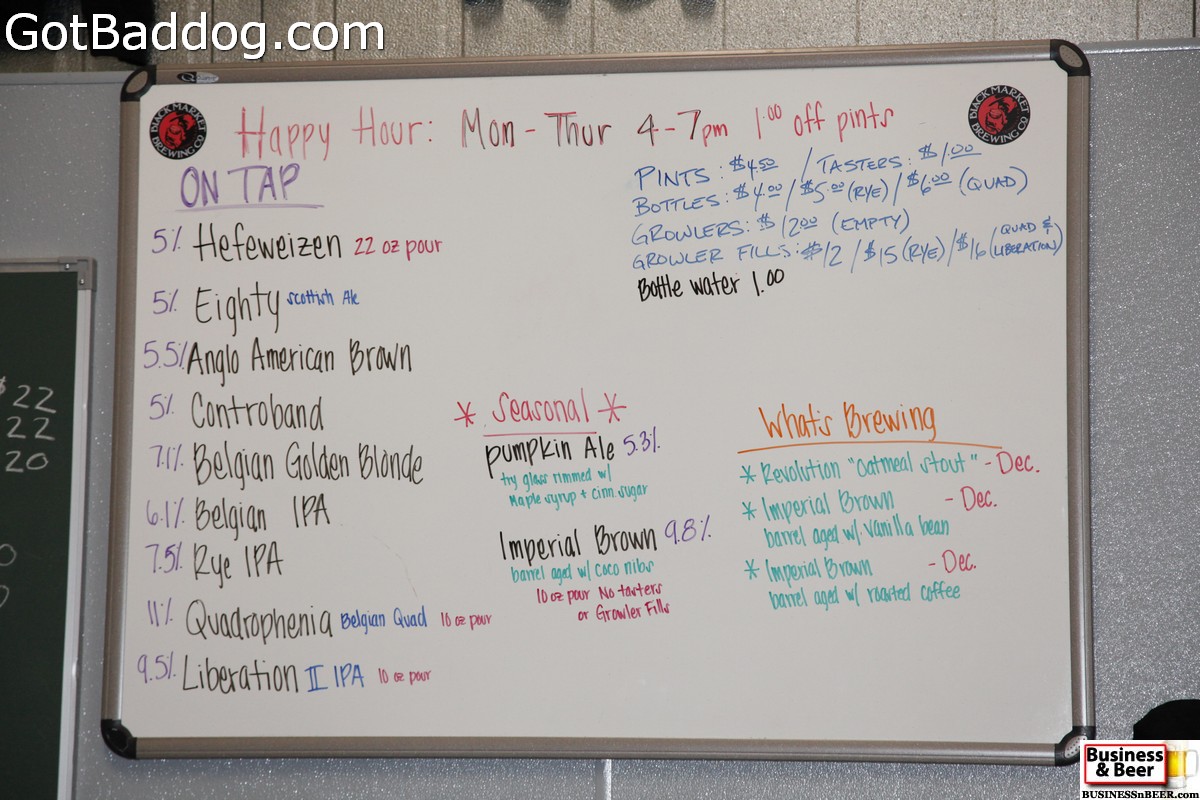 GotBaddog.com
BLACK MARKET BREWING CO
BLACK MARKET BREWING CO
Happy Hour: Mon - Thur 4-7pm 1.00 off pints
ON TAP
5% Hefeweizen 22 oz pour
5% Eighty Scottish Ale
5.5% Anglo American Brown
5% Controband
7.1% Belgian Golden Blonde
6.1% Belgian IPA
7.5% Rye IPA
11% Quadrophenia Belgian Quad 10 oz pour
9.5% Liberation II IPA 10 oz pour
PINTS: $4.50 / TASTERS: $1.00
BOTTLES: $4.00 / $5.00 (RYE) / $6.00 (QUAD)
GROWLERS: $12.00 (EMPTY)
GROWLER FILLS: $12 / $15 (RYE) / $16 (QUAD & LIBERATION)
Bottle water 1.00
* Seasonal *
Pumpkin Ale 5.3%
try glass rimmed w/
Maple syrup + cinn. sugar
Imperial Brown 9.8%
barrel aged w/ coco nibs
10 oz pour No tasters
or Growler Fills
What's Brewing
* Revolution "Oatmeal Stout" - Dec.
* Imperial Brown - Dec.
barrel aged w/ Vanilla bean
* Imperial Brown - Dec.
barrel aged w/ roasted coffee
$22
22
20
Business
& Beer
BUSINESSnBEER.com